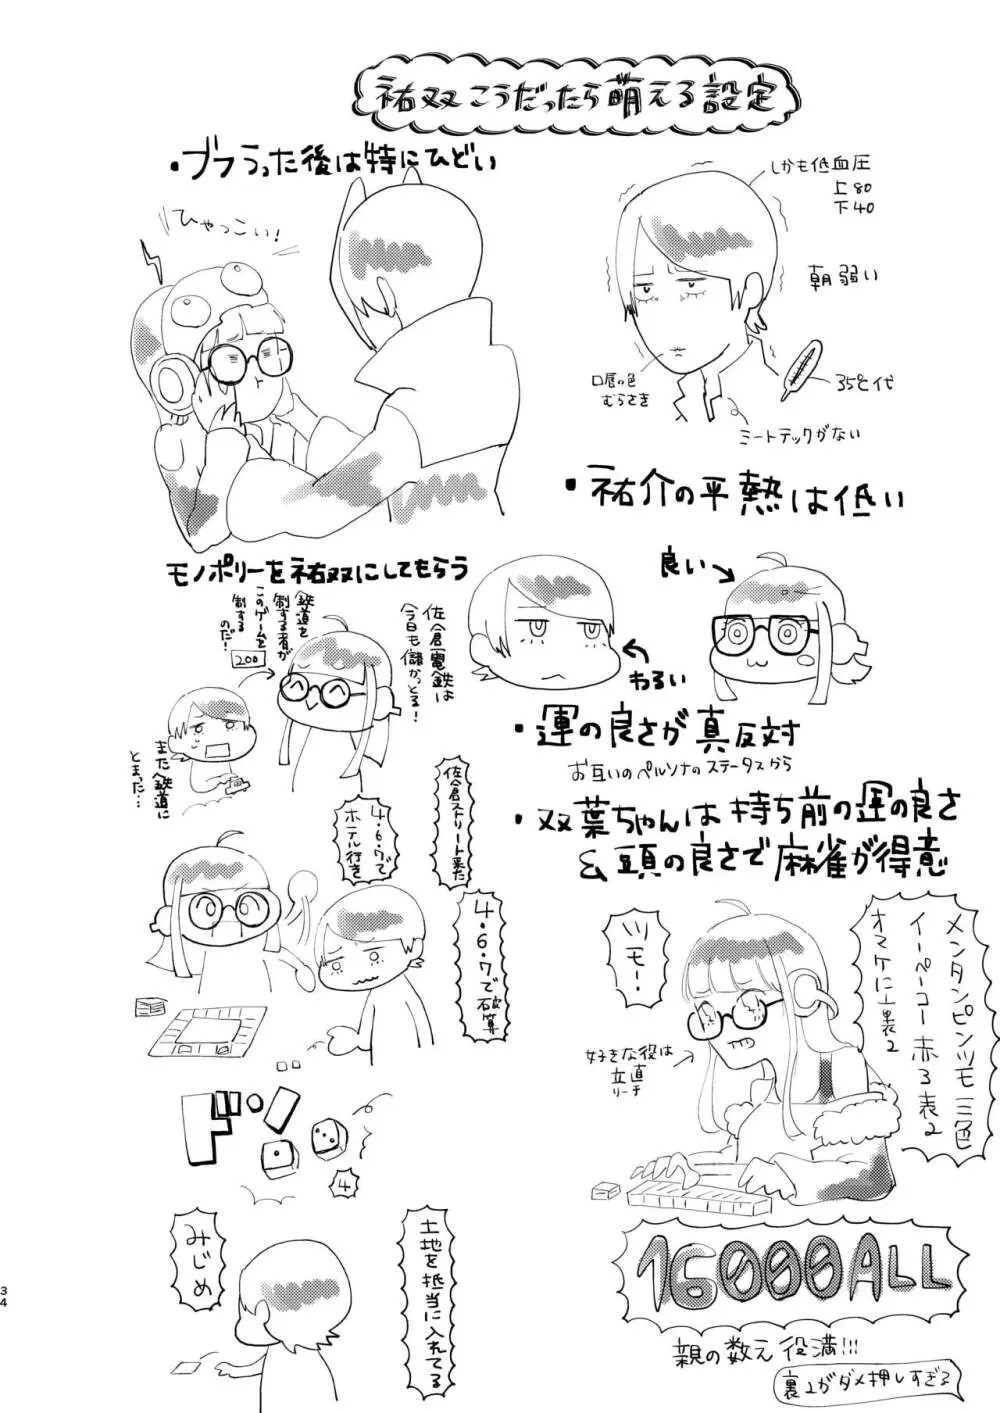 祐双こうだったら萌える設定
・ブフうった後は特にひどい
ひゃっこい!
しかも低血圧
上80
下40
朝弱い
35℃代
口唇の色
むらさき
ミートテックがない
・祐介の平熱は低い
良い
わるい
・運の良さが真反対
お互いのペルソナのステータスから
・双葉ちゃんは持ち前の運の良さ
&頭の良さで麻雀が得意
ツモ!
メンタンピンツモ三色
イーペーコー赤3表2
オマケに裏2
好きな役は
立直
リーチ
16000ALL
親の数え役満!!!
裏2がダメ押しすぎる
モノポリーを祐双にしてもらう
佐倉電鉄は
今日も儲かっとる!
鉄道を
制する者が
このゲームを
制する
のだ!
200
また鉄道に
とまった…
佐倉ストリート来た
4・6・7で
ホテル行き
4・6・7で破算
ドン
4
土地を抵当に入れてる
みじめ
34